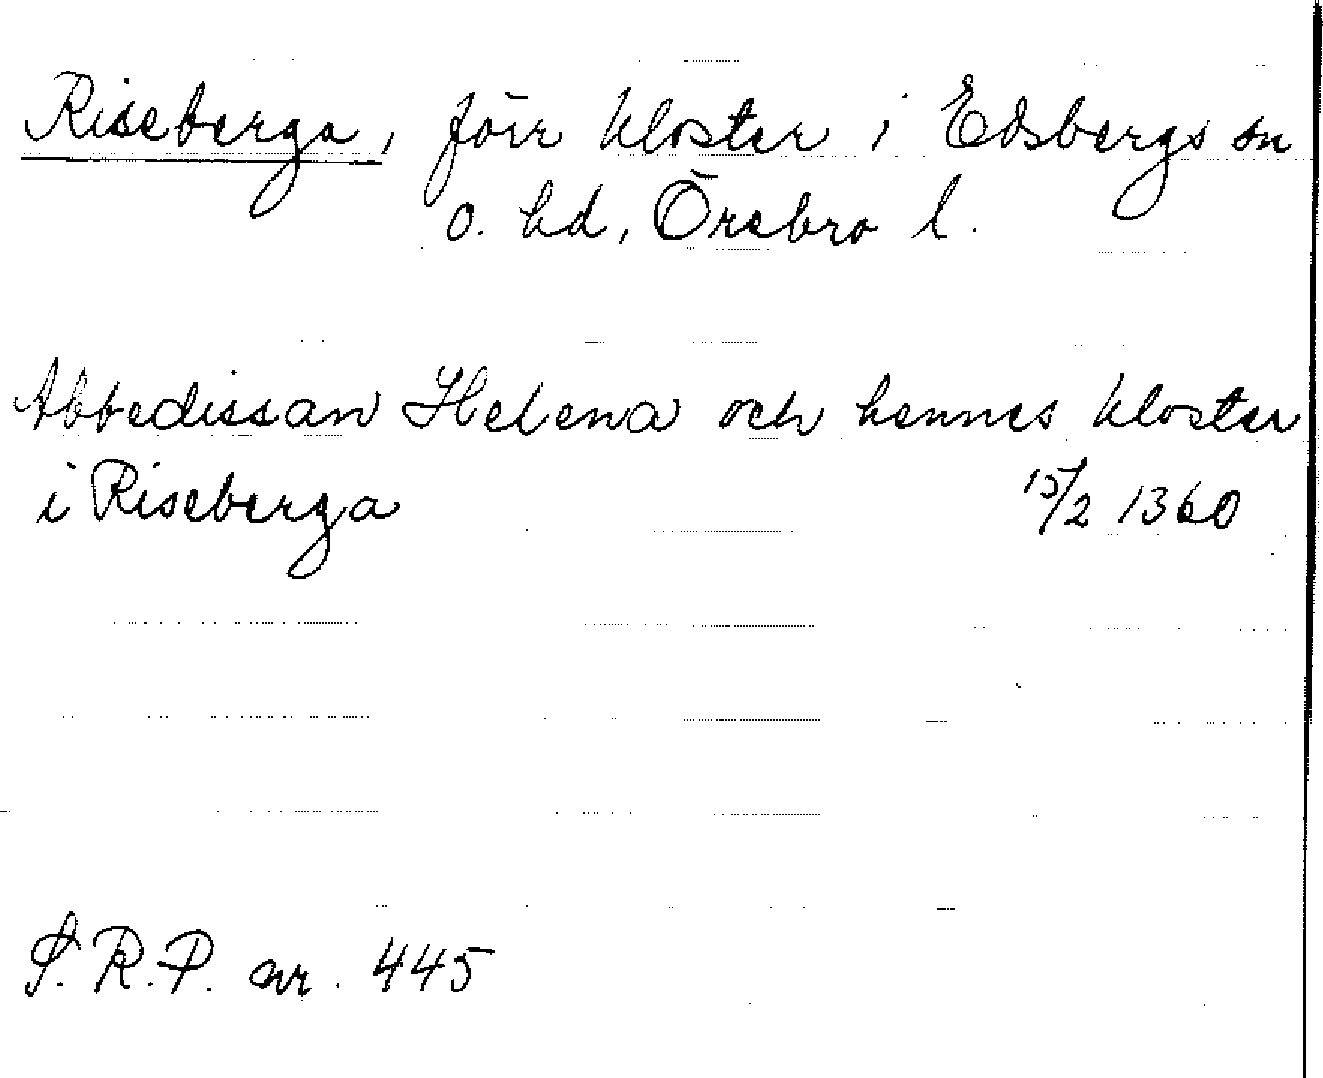 Riseberga, förr kloster i Edsbergs sn
o. hd, Örebro l.
Abbedissan Helena och hennes kloster
i Riseberga 15/2 1360
S.R.P. nr. 445